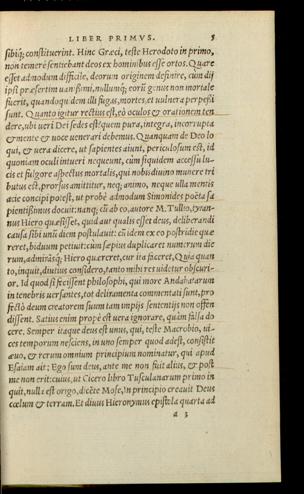 LIBER PRIMVS. 5
sibiq; constituerint. Hinc Græci, teste Herodoto in primo,
non temerè sentiebant deos ex hominibus esse ortos. Quare
esset admodum difficile, deorum originem definire, cùm dij
ipsi præsertim uani simi, nullumq; eorū genus non mortale
fuerit, quandoquidem illi fugas, mortes, et uulnera perpessi
sunt. Quanto igitur rectius est, eò oculos & orationem ten
dere, ubi ueri Dei sedes est? quem pura, integra, incorrupta
& mente & uoce uenerari debemus. Quanquam de Deo lo
qui, & uera dicere, ut sapientes aiunt, periculosum est, id
quoniam oculi intueri nequeunt, cùm siquidem accessu lu-
cis et fulgore aspectus mortalis, qui nobis diuino munere tri
butus est, prorsus amittitur, neq; animo, neque ulla mentis
acie concipi potest, ut probè admodum Simonides poëta sa
pientissimus docuit: nanq; cū ab eo, autore M. Tullio, tyran-
nus Hiero quæsisset, quid aut qualis esset deus, deliberandi
causa sibi unū diem postulauit: cū idem ex eo postridie quæ
reret, biduum petiuit: cùm sæpius duplicaret numerum die
rum, admiransq; Hiero quæreret, cur ita faceret, Quia quan
to, inquit, diutius considero, tanto mihi res uidetur obscuri-
or. Id quod si fecissent philosophi, qui more Andabatarum
in tenebris uersantes, tot deliramenta commentati sunt, pro
fectò deum creatorem suum tam impijs sententijs non offen
dissent. Satius enim propè est uera ignorare, quàm falsa do
cere. Semper itaque deus est unus, qui, teste Macrobio, ui-
ces temporum nesciens, in uno semper quod adest, consistit
æuo, & rerum omnium principium nominatur, qui apud
Esaiam ait: Ego sum deus, ante me non fuit alius, & post
me non erit: cuius, ut Cicero libro Tusculanarum primo in
quit, nulla est origo, dicēte Mose, In principio creauit Deus
cœlum & terram. Et diuus Hieronymus epistola quarta ad
a 3